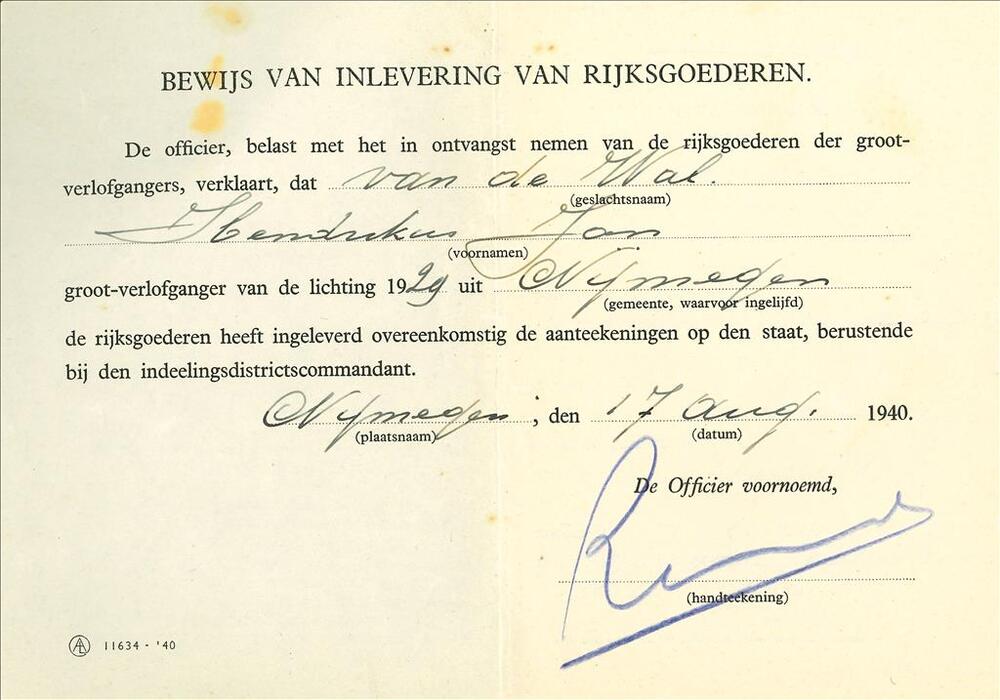 BEWIJS VAN INLEVERING VAN RIJKSGOEDEREN.
De officier, belast met het in ontvangst nemen van de rijksgoederen der groot-
verlofgangers, verklaart, dat van de Wal.
(geslachtsnaam)
Hendrikus Jan
(voornamen)
groot-verlofganger van de lichting 1929 uit Nijmegen
(gemeente, waarvoor ingelijfd)
de rijksgoederen heeft ingeleverd overeenkomstig de aanteekeningen op den staat, berustende
bij den indeelingsdistrictscommandant.
Nijmegen, den 17 Aug. 1940.
(plaatsnaam) (datum)
De Officier voornoemd,
(handteekening)
11634 - '40